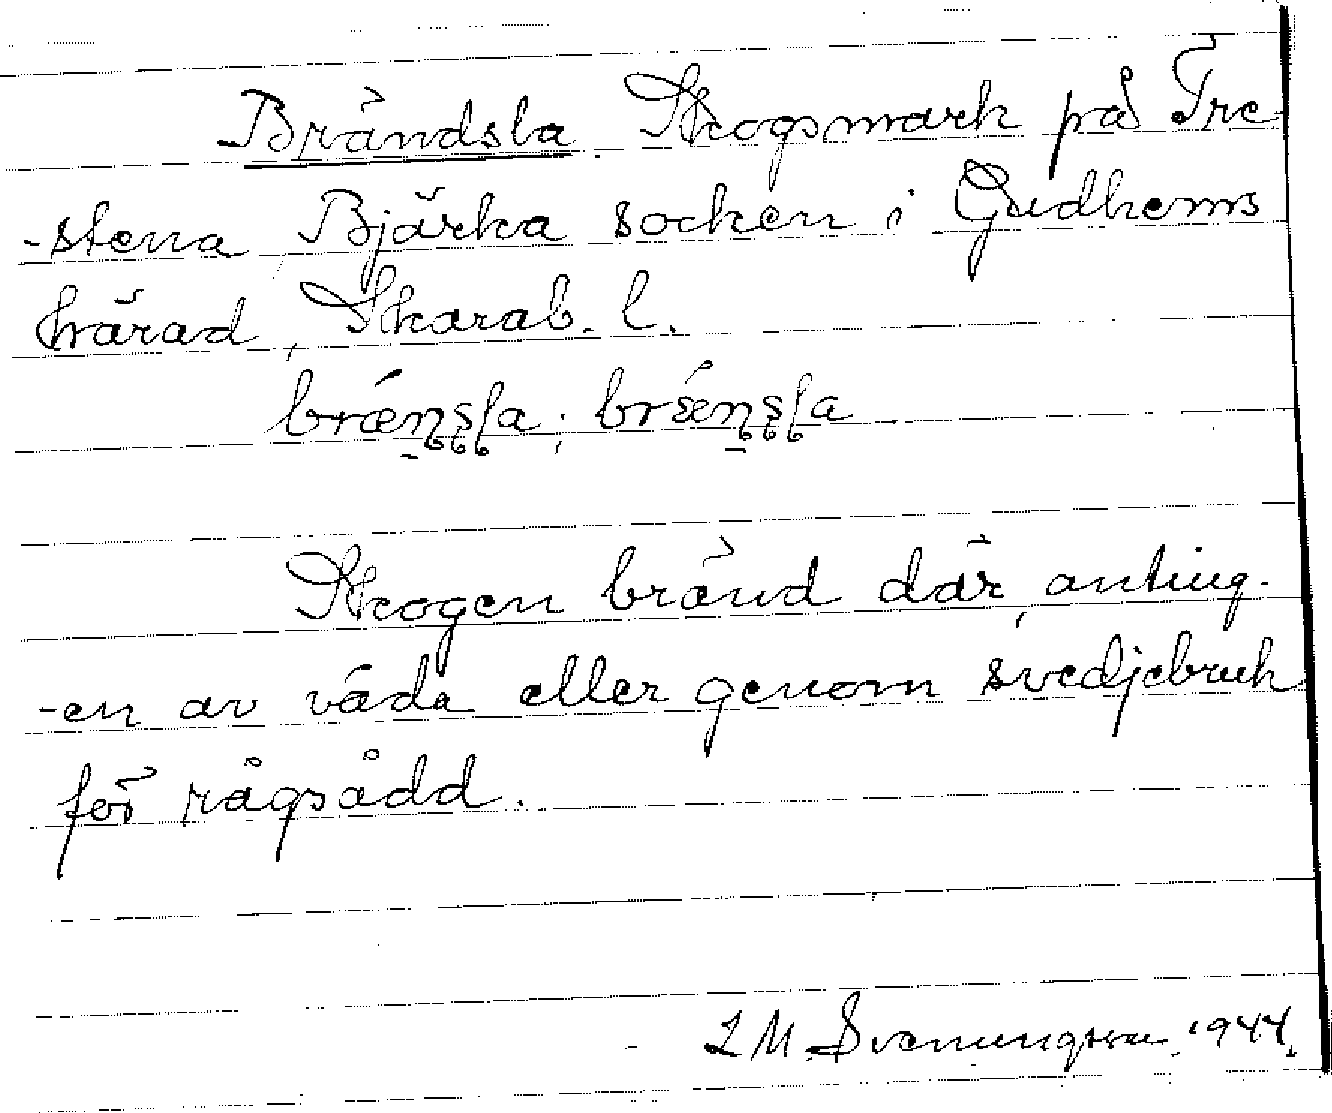 Brändsla Skogsmark på Tre
-stena, Bjärka socken i Gudhems
härad, Skarab. l.
brænsla; brænsla
Skogen bränd där, anting-
-en av våda eller genom svedjebruk
för rågsådd.
L M Svenungsson 1944.